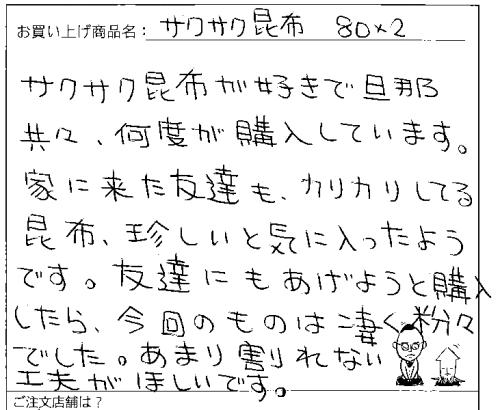 お買い上げ商品名: サクサク昆布 80×2
サクサク昆布が好きで旦那
共々、何度が購入しています。
家に来た友達も、カリカリしてる
昆布、珍しいと気に入ったよう
です。友達にもあげようと購入
したら、今回のものは凄く粉々
でした。あまり割れない
工夫がほしいです。
ご注文店舗は?